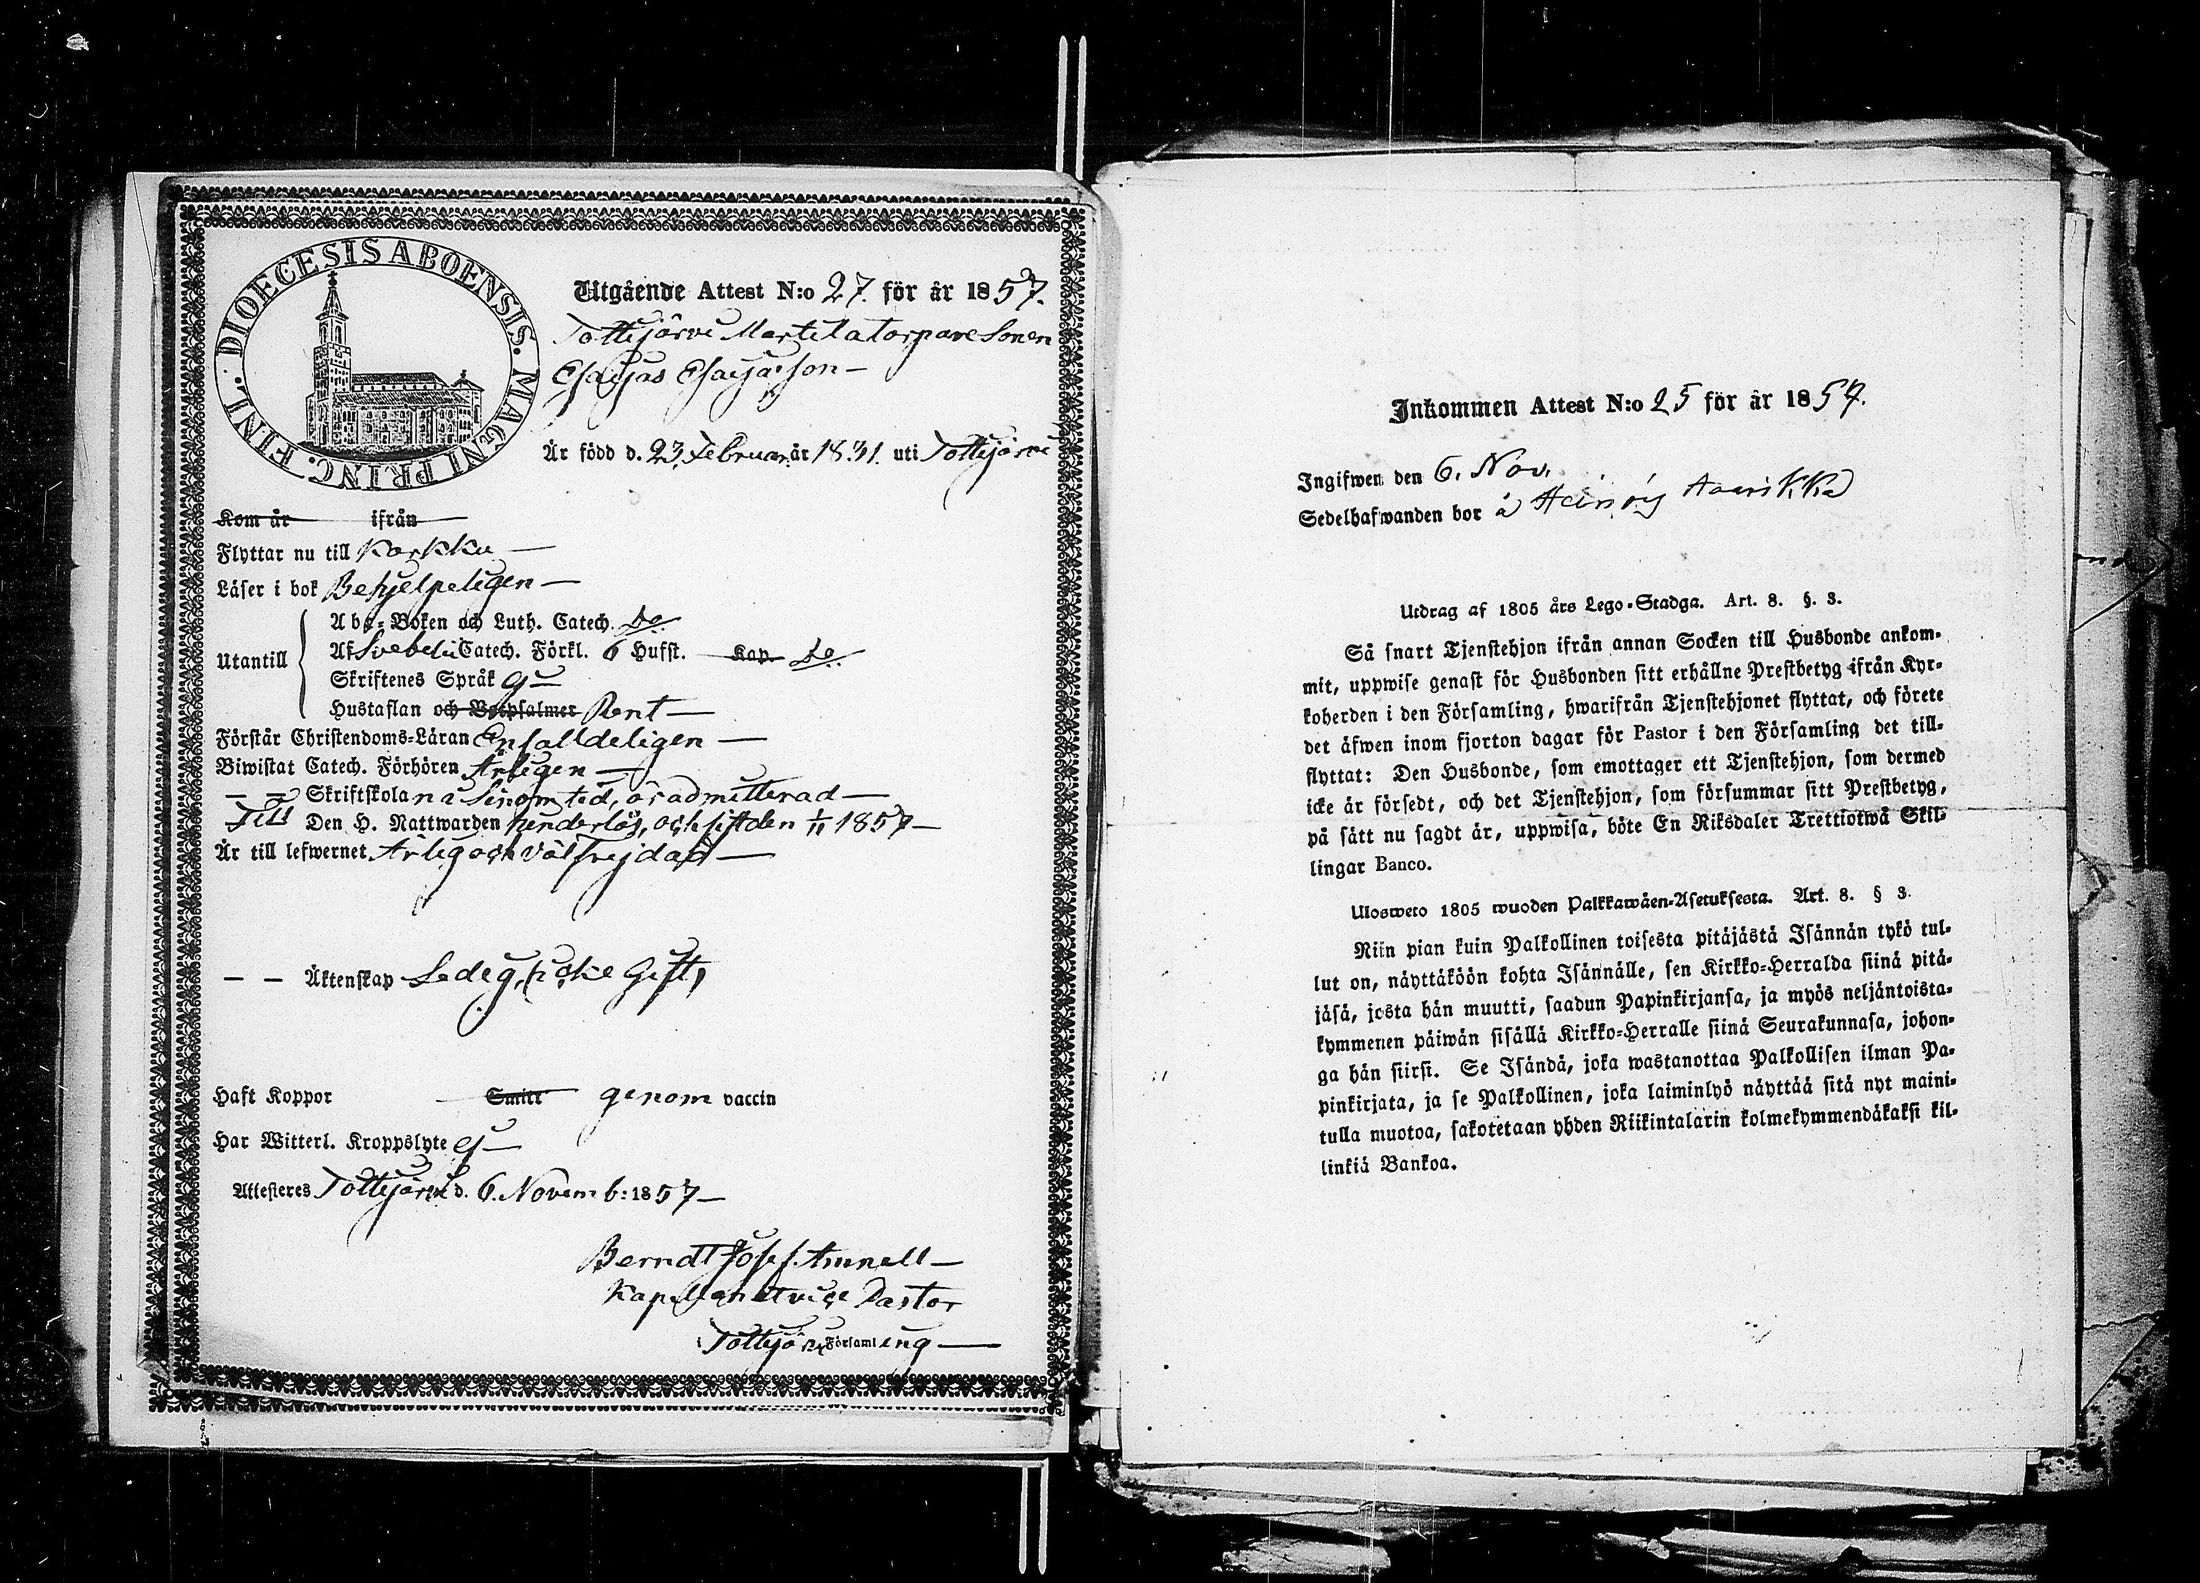 DIOECESIS ABOENSIS. MAGNI PRINC. FINL.
Utgående Attest N:o 27. för år 1857.
Tottijärvi Martila torpare Sonen
Esaijas Esaijasson —
Är född d. 23. Februar. år 1831. uti Tottijärvi
Kom år ifrån
Flyttar nu till Karkku —
Läser i bok Behjelpeligen —
Utantill
Abc-Boken och Luth. Catech. do.
Af Svebelii Catech. Förkl. 6 Hufst. Kap. do.
Skriftenes Språk
Hustaflan och Botpsalmer Rent —
Förstår Christendoms-Läran Enfalldeligen —
Biwistat Catech. Förhören Årligen —
— — Skriftskolan i sinom tid, är admitterad —
Till Den H. Nattwarden hinderlös, och sist den 1/11 1857 —
Är till lefwernet Ärlig och välfrejdad —
— — Äktenskap Ledig, icke Gift,
Haft Koppor Smitt genom vaccin
Har Witterl. Kroppslyte ej —
Attesteres Tottijärvi d. 6. Novemb: 1857 —
Berndt Josef Amnell —
Kapellan et vice Pastor
i Tottijärvi Församling —
Inkommen Attest N:o 25 för år 1857.
Ingifwen den 6. Nov.
Sedelhafwanden bor å Heinoy
Utdrag af 1805 års Lego-Stadga. Art. 8. §. 3.
Så snart Tjenstehjon ifrån annan Socken till Husbonde ankom-
mit, uppwise genast för Husbonden sitt erhållne Prestbetyg ifrån Kyr-
koherden i den Församling, hwarifrån Tjenstehjonet flyttat, och förete
det äfwen inom fjorton dagar för Pastor i den Församling det till-
flyttat: Den Husbonde, som emottager ett Tjenstehjon, som dermed
icke är försedt, och det Tjenstehjon, som försummar sitt Prestbetyg,
på sätt nu sagdt är, uppwisa, böte En Riksdaler Trettiotwå Skil-
lingar Banco.
Ulosweto 1805 wuoden Palkkawäen-Asetuksesta. Art. 8. § 3.
Niin pian kuin Palkollinen toisesta pitäjästä Isännän tykö tul-
lut on, näyttäköön kohta Isännälle, sen Kirkko-Herralda siinä pitä-
jäsä, josta hän muutti, saadun Papinkirjansa, ja myös neljäntoista-
kymmenen päiwän sisällä Kirkko-Herralle siinä Seurakunnasa, johon-
ga hän siirsi. Se Isändä, joka wastanottaa Palkollisen ilman Pa-
pinkirjata, ja se Palkollinen, joka laiminlyö näyttää sitä nyt maini-
tulla muotoa, sakotetaan yhden Riikintalarin kolmekymmendäkaksi kil-
linkiä Bankoa.